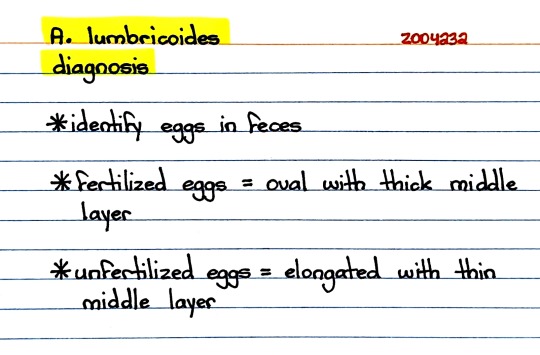 A. lumbricoides
ZOO4232
diagnosis
*identify eggs in feces
*fertilized eggs = oval with thick middle
layer
*unfertilized eggs = elongated with thin
middle layer